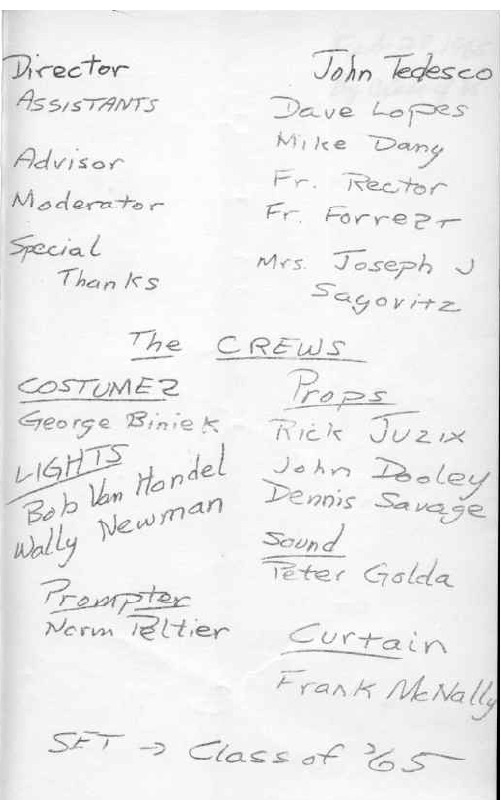 Director John Tedesco
ASSISTANTS Dave Lopes
Mike Dany
Advisor Fr. Rector
Moderator Fr. Forrezt
Special Mrs. Joseph J
Thanks Sagovitz
The CREWS
COSTUMEZ Props
George Biniek Rick Juzix
LIGHTS John Dooley
Bob Van Handel Dennis Savage
Wally Newman
Sound
Peter Golda
Prompter
Norm Peltier
Curtain
Frank McNally
SET → Class of '65